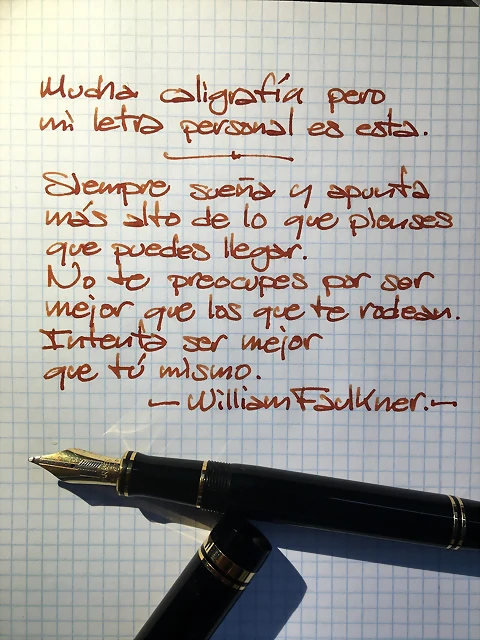 Mucha caligrafía pero
mi letra personal es esta.
Siempre sueña y apunta
más alto de lo que pienses
que puedes llegar.
No te preocupes por ser
mejor que los que te rodean.
Intenta ser mejor
que tú mismo.
—William Faulkner.—